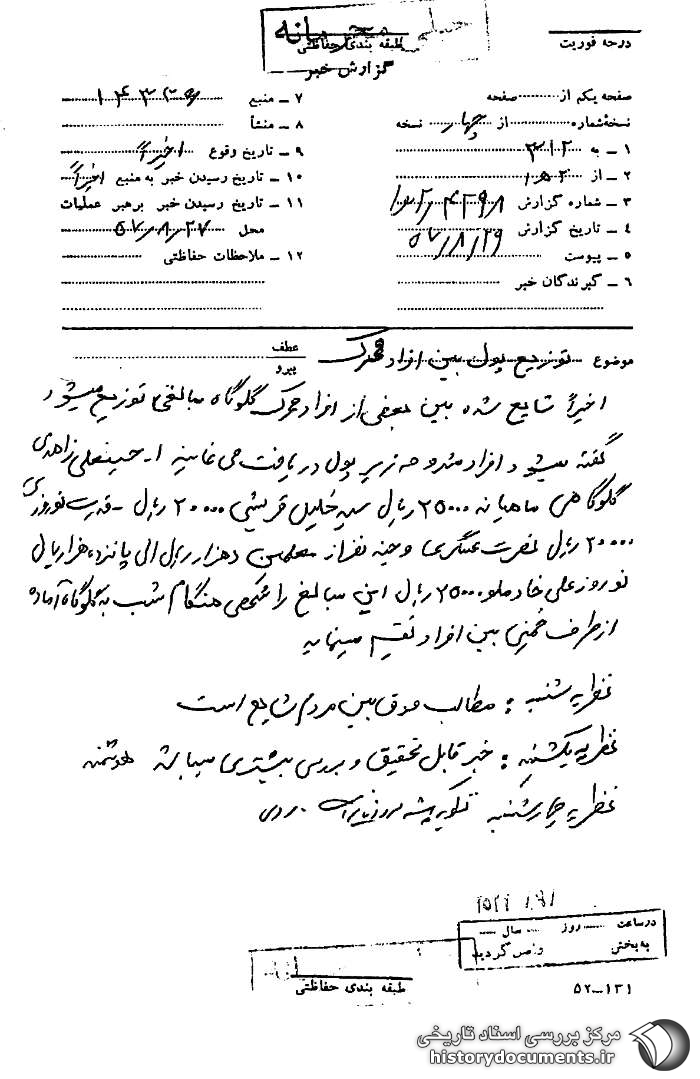 خیلی محرمانه
طبقه بندی حفاظتی
گزارش خبر
درجه فوریت
صفحه یکم از صفحه
نسخهٔ شماره از چهار نسخه
۱ ــ به ۳۱۲
۲ ــ از
۳ ــ شماره گزارش
۴ ــ تاریخ گزارش ۵۷/۸/۲۹
۵ ــ پیوست
۶ ــ گیرندگان خبر
۷ ــ منبع
۸ ــ منشأ
۹ ــ تاریخ وقوع اخیراً
۱۰ ــ تاریخ رسیدن خبر به منبع اخیراً
۱۱ ــ تاریخ رسیدن خبر برهبر عملیات
محل ۵۷/۸/۲۷
۱۲ ــ ملاحظات حفاظتی
موضوع توزیع پول بین افراد محرک
عطف
پیرو
اخیراً شایع شده بین بعضی از افراد محرک گلوگاه مبالغی توزیع میشود
گفته میشود افراد مشروحه زیر پول دریافت می نمایند ۱ـ حسینعلی زاهدی
گلوگاهی ماهیانه ۲۵۰۰۰ ریال سید خلیل قریشی ۲۰۰۰۰ ریال ـ قدرت نوروزی
۲۰۰۰۰ ریال نصرت عسگری و چند نفر از معلمین دهزار ریال الی پانزده هزار ریال
نوروزعلی خادملو ۲۵۰۰۰ ریال این مبالغ را شخصی هنگام شب به گلوگاه آماده
از طرف خمینی بین افراد تقسیم مینماید
نظریه شنبه : مطالب فوق بین مردم شایع است
نظریه یکشنبه : خبر قابل تحقیق و بررسی بیشتری میباشد هوشمند
نظریه چهارشنبه
درساعت روز سال
به بخش واصل گردید
طبقه بندی حفاظتی
۵۲ــ۱۳۱
مرکز بررسی اسناد تاریخی
historydocuments.ir